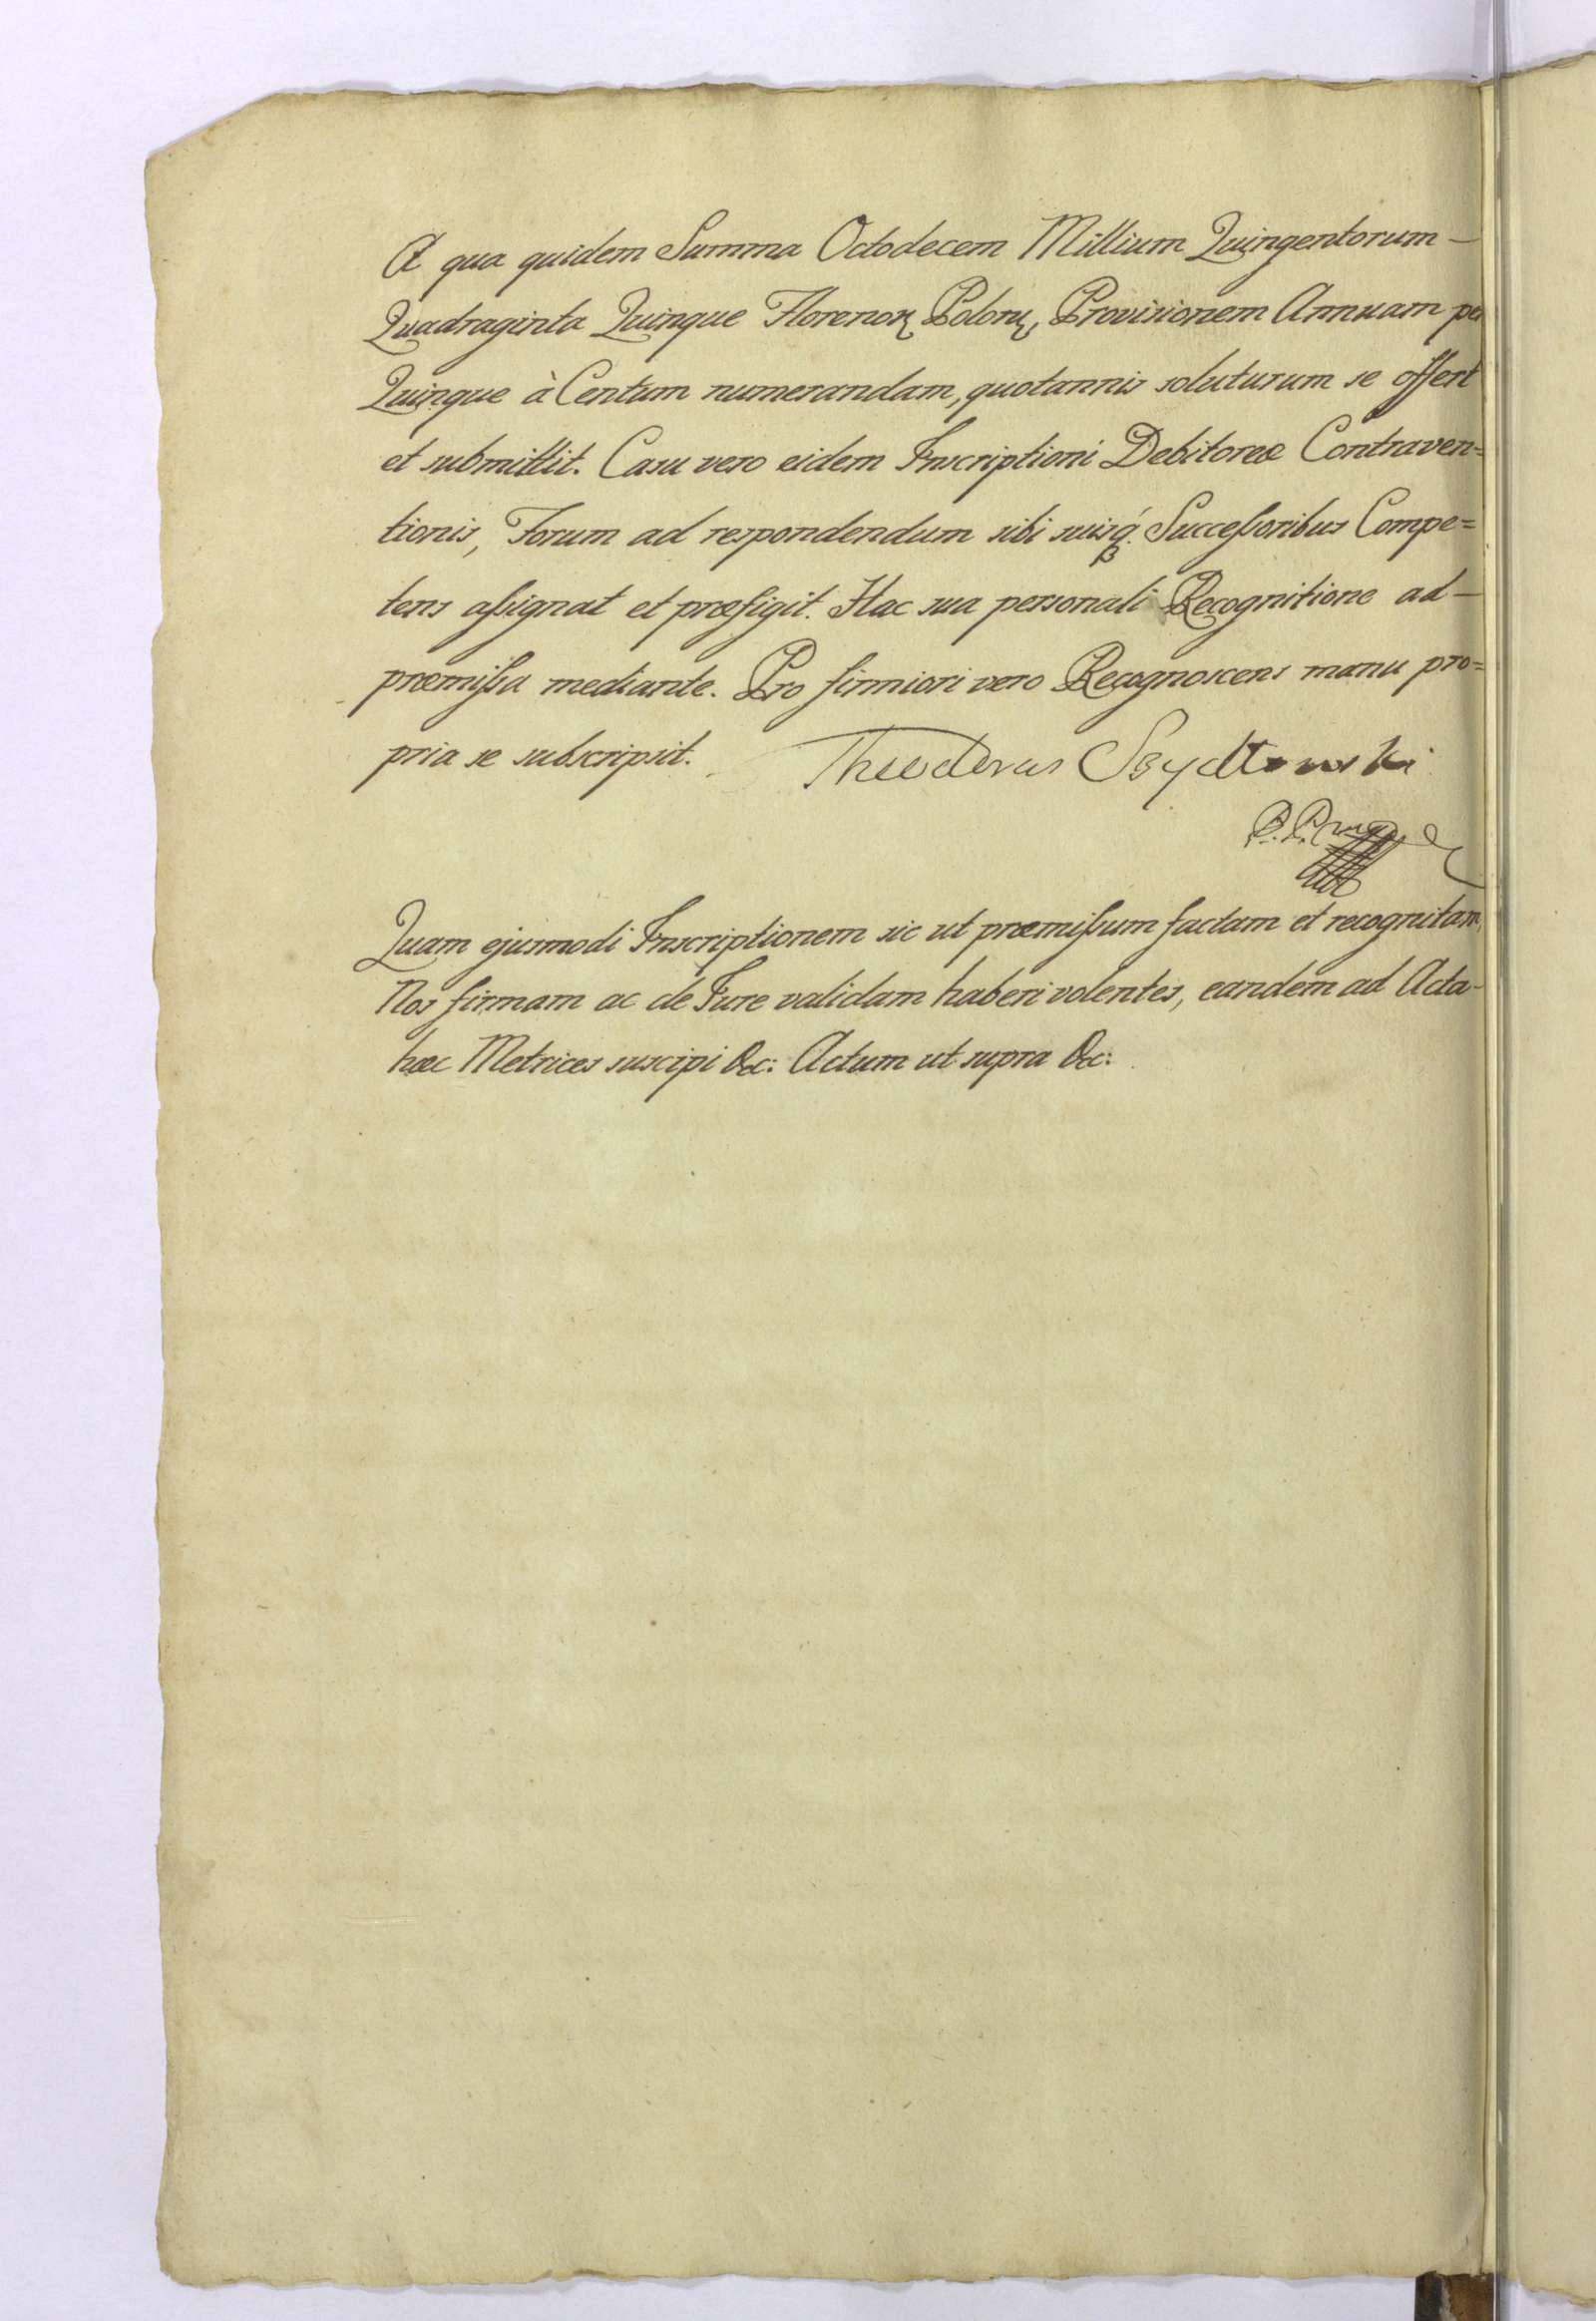 A qua quidem Summa Octodecem Millium Quingentorum –
Quadraginta Quinque Florenoꝝ Polonꝝ, Provisionem Annuam per
Quinque à Centum numerandam, quotannis soluturum se offert
et submittit. Casu vero eidem Inscriptioni Debitoreæ Contraven=
tionis, Forum ad respondendum sibi suisq́ꝫ Succeſsoribus Compe=
tens aſsignat et præfigit. Hac sua personali Recognitione ad –
præmiſsa mediante. Pro firmiori vero Recognoscens manu pro=
pria se subscripsit. Theodorus Szydłowski
Quam ejusmodi Inscriptionem sic ut præmiſsum factam et recognitam,
Nos firmam ac de Jure validam haberi volentes, eandem ad Acta –
hæc Metrices suscipi &c: Actum ut supra &c: